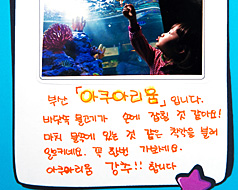 부산 「아쿠아리움」 입니다.
바닷속 물고기가 손에 잡힐 것 같아요!
마치 물속에 있는 것 같은 착각을 불러
일으키네요. 꼭 한번 가보세요.
아쿠아리움 강추!! 합니다